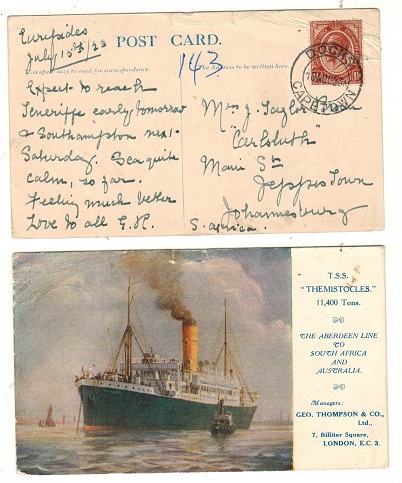 Euripides
July 15th/23
POST CARD.
143
This space may be used for correspondence.
The address to be written here.
Expect to reach
Teneriffe early tomorrow
& Southampton next
Saturday. Sea quite
calm, so far.
Feeling much better
Love to all G.H.
Mrs J. Taylor
"Carsluth"
Main St
Jeppestown
Johannesburg
S. Africa.
DOCKS
CAPETOWN
T.S.S.
"THEMISTOCLES."
11,400 Tons.
THE ABERDEEN LINE
TO
SOUTH AFRICA
AND
AUSTRALIA.
Managers:
GEO. THOMPSON & CO.,
Ltd.,
7, Billiter Square,
LONDON, E.C. 3.